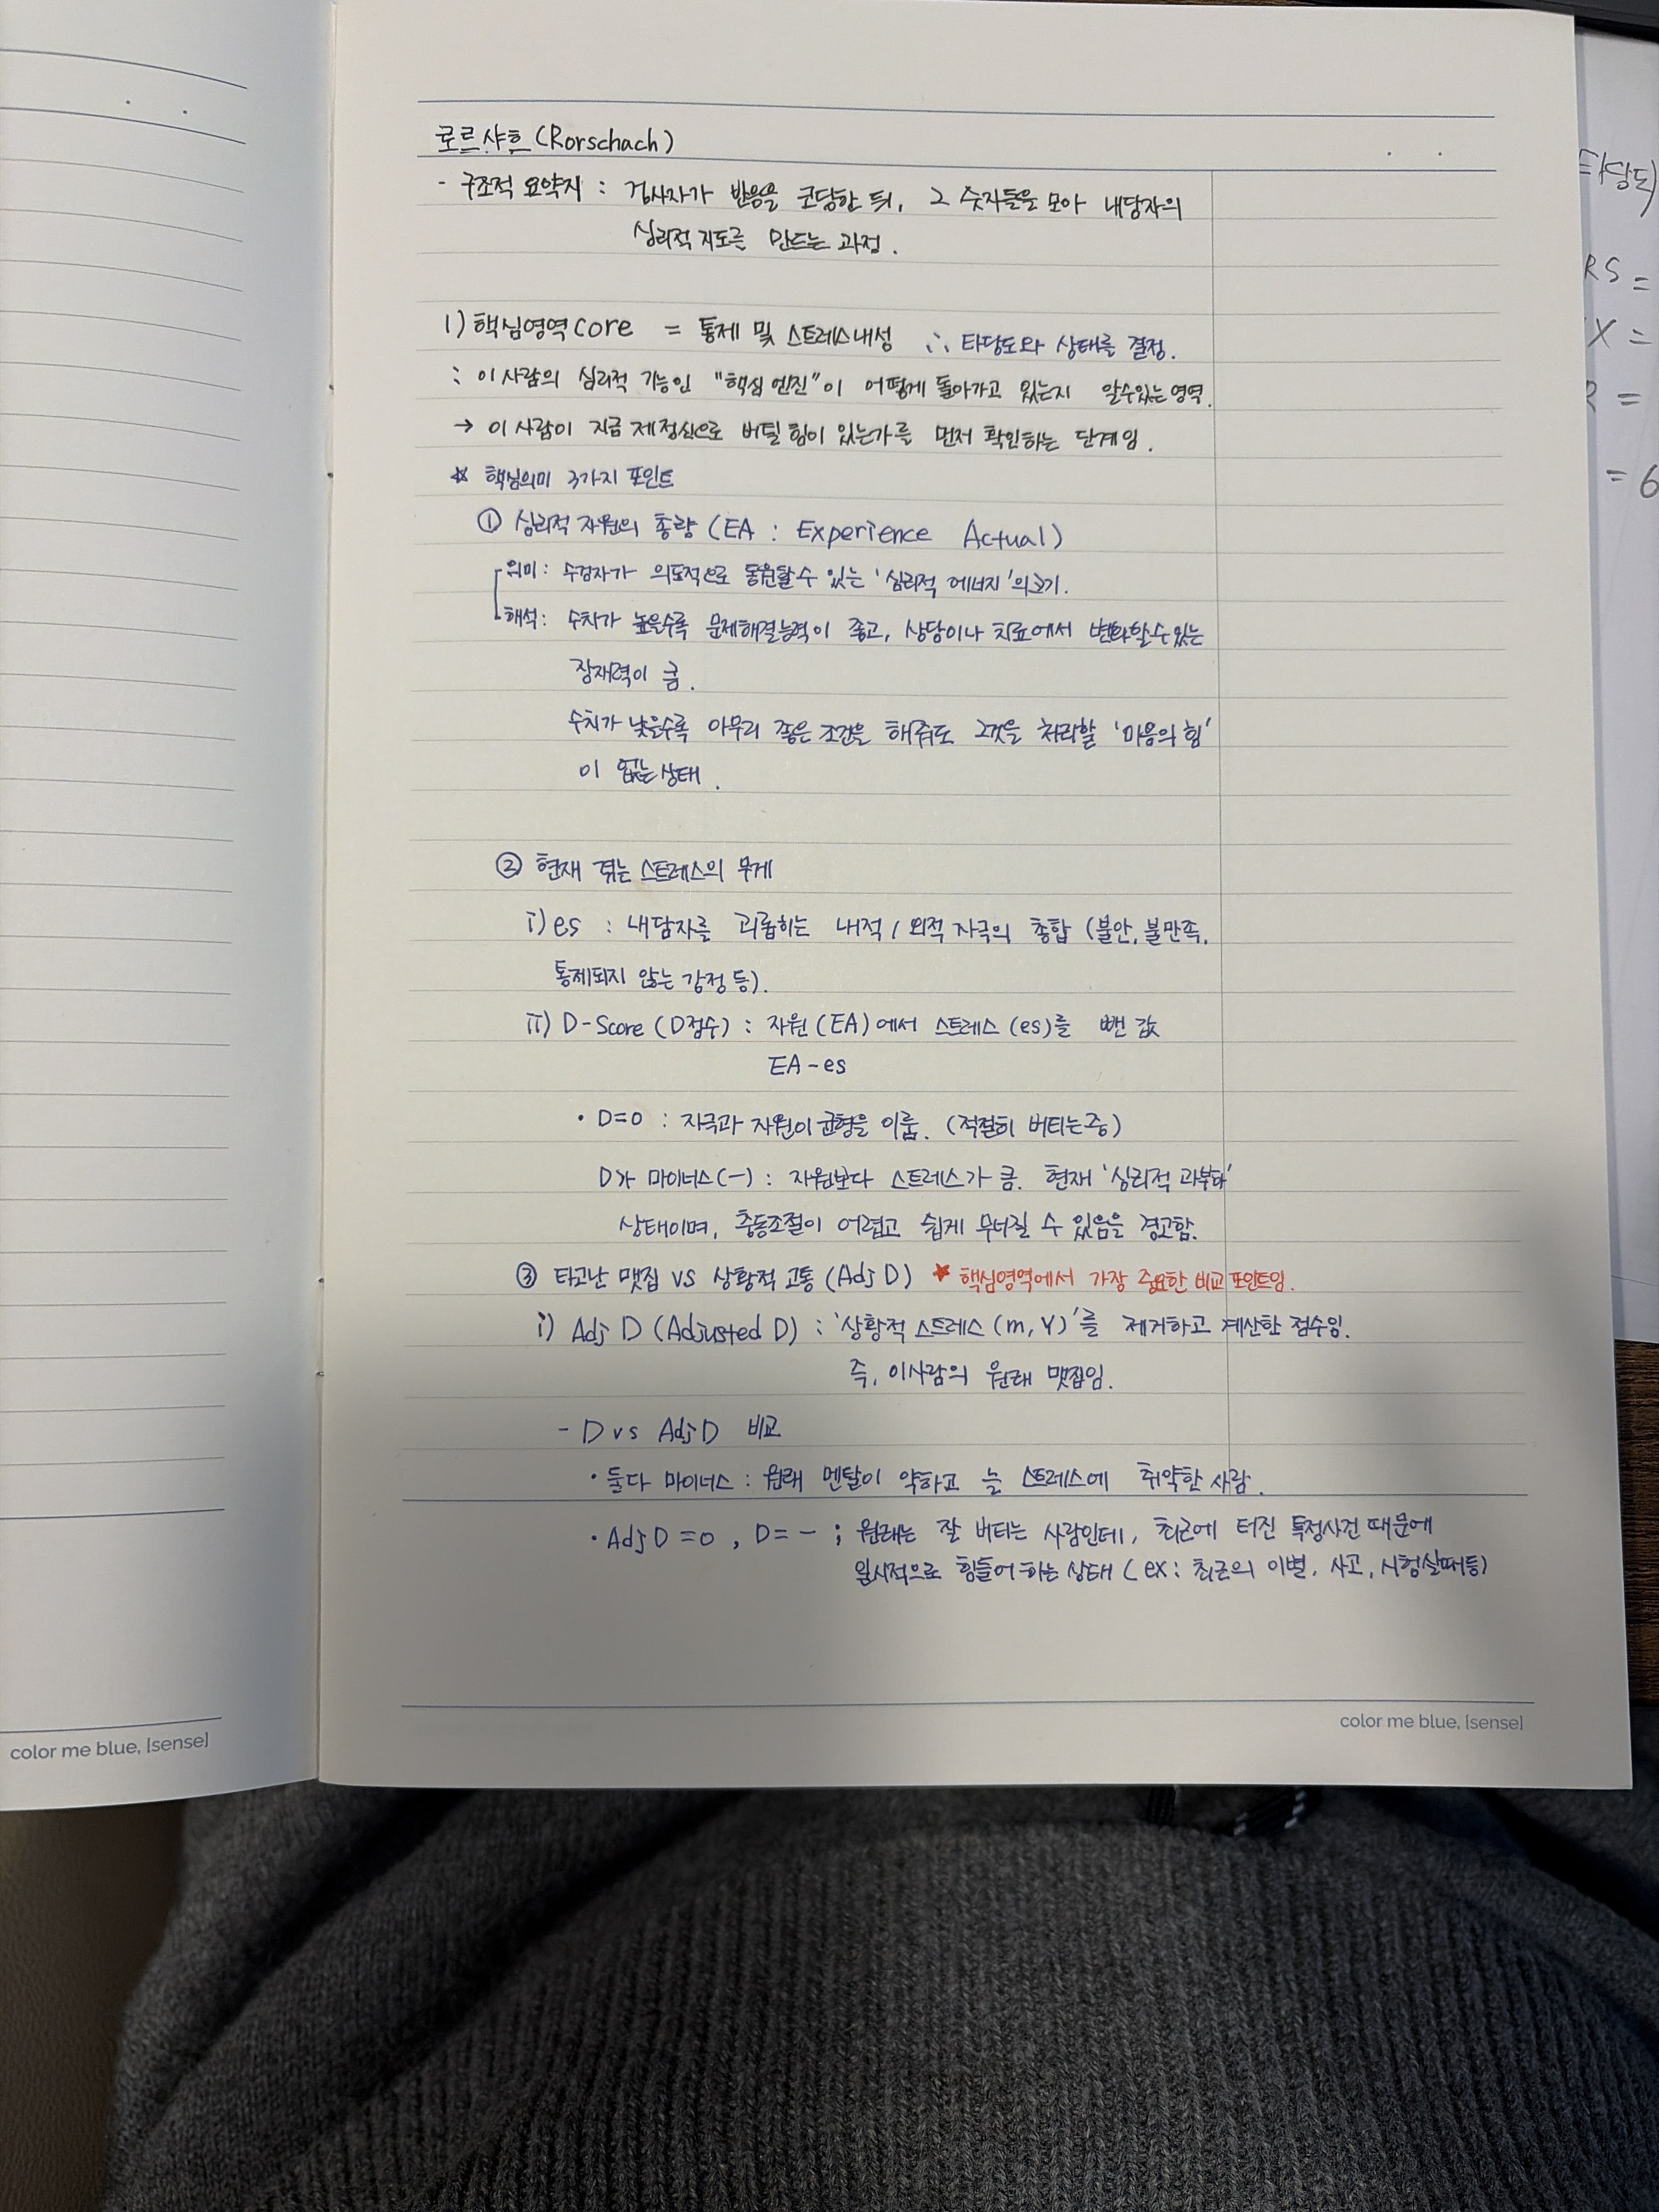 로르샤흐(Rorschach)
- 구조적 요약지 : 검사자가 반응을 코딩한 뒤, 그 숫자들을 모아 내담자의
심리적 지도를 만드는 과정.
1) 핵심영역 core = 통제 및 스트레스내성 ∴ 타당도와 상태를 결정.
: 이 사람의 심리적 기능인 "핵심엔진"이 어떻게 돌아가고 있는지 알수있는 영역.
→ 이 사람이 지금 제정신으로 버틸 힘이 있는가를 먼저 확인하는 단계임.
☆ 핵심의미 3가지 포인트
① 심리적 자원의 총량 (EA : Experience Actual)
의미 : 수검자가 의도적으로 동원할 수 있는 '심리적 에너지'의 크기.
해석 : 수치가 높을수록 문제해결능력이 좋고, 상담이나 치료에서 변화할 수 있는
잠재력이 큼.
수치가 낮을수록 아무리 좋은 조건을 해줘도 그것을 처리할 '마음의 힘'
이 없는 상태.
② 현재 겪는 스트레스의 무게
i) es : 내담자를 괴롭히는 내적 / 외적 자극의 총합 (불안, 불만족,
통제되지 않는 감정 등).
ii) D-Score (D점수) : 자원 (EA)에서 스트레스 (es)를 뺀 값
EA - es
• D=0 : 자극과 자원이 균형을 이룸. (적절히 버티는 중)
D가 마이너스(-) : 자원보다 스트레스가 큼. 현재 '심리적 과부하'
상태이며, 충동조절이 어렵고 쉽게 무너질 수 있음을 경고함.
③ 타고난 맷집 vs 상황적 고통 (Adj D) ★ 핵심영역에서 가장 중요한 비교 포인트임.
i) Adj D (Adjusted D) : '상황적 스트레스 (m, Y)'를 제거하고 계산한 점수임.
즉, 이사람의 원래 맷집임.
- D vs Adj D 비교
• 둘다 마이너스 : 원래 멘탈이 약하고 늘 스트레스에 취약한 사람.
• Adj D = 0 , D = - ; 원래는 잘 버티는 사람인데, 최근에 터진 특정사건 때문에
일시적으로 힘들어 하는 상태 (ex : 최근의 이별, 사고, 시험실패등)
color me blue, [sense]
color me blue, [sense]
타당도)
RS =
X =
R =
= 6